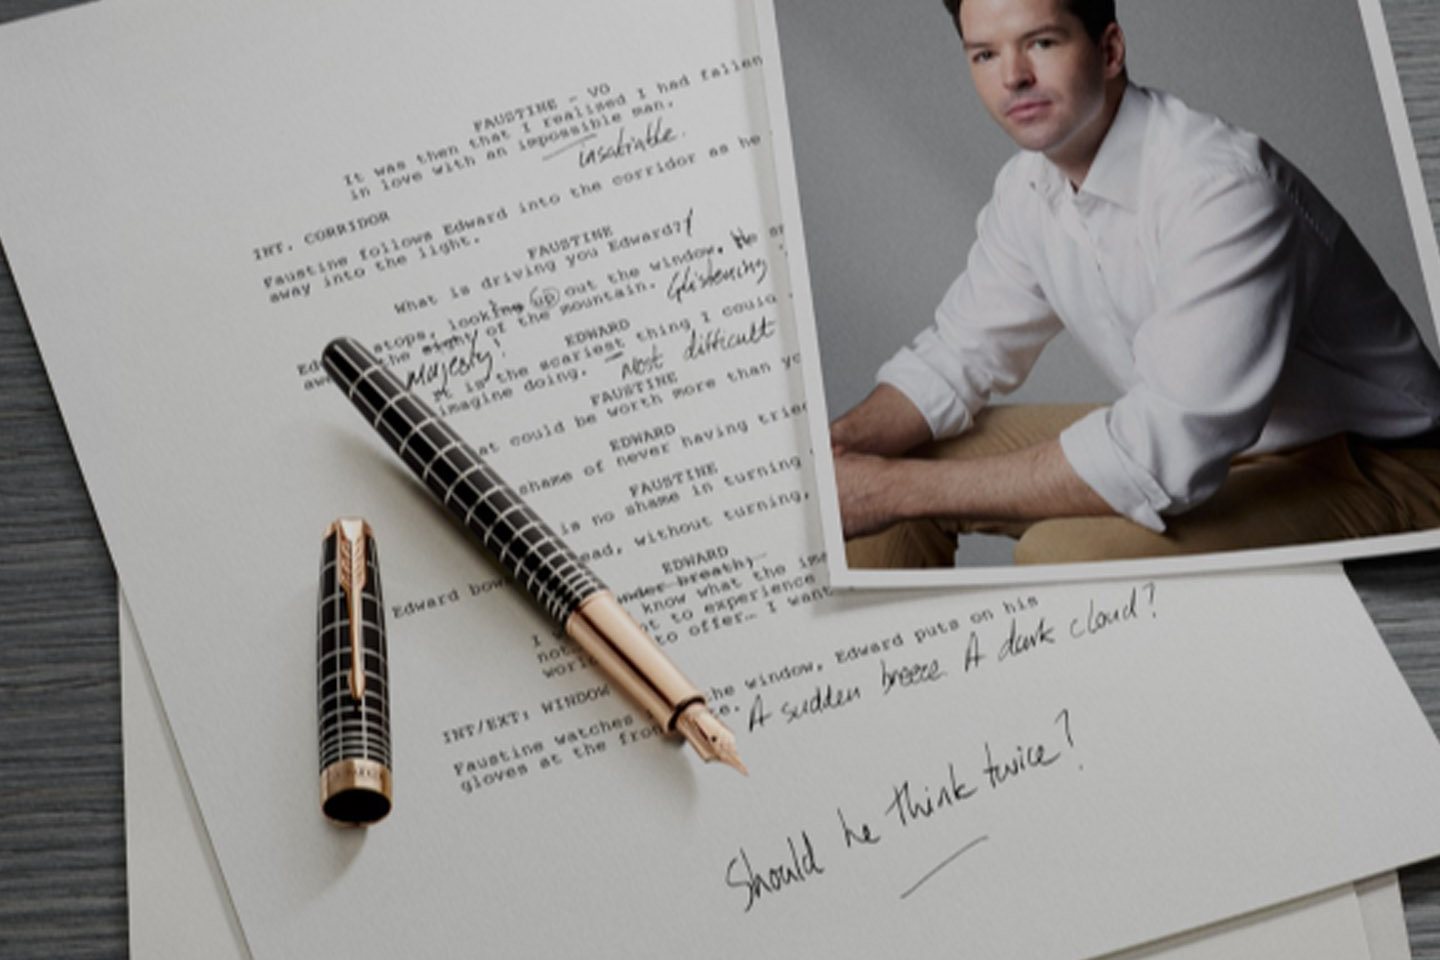 FAUSTINE - VO
It was then that I realised I had fallen
in love with an impossible man.
insatiable.
INT. CORRIDOR
Faustine follows Edward into the corridor as he
away into the light.
FAUSTINE
What is driving you Edward??
stops, looking up out the window. He
the sight of the mountain. Glistening
majesty!
EDWARD
It is the scariest thing I could
imagine doing. most difficult
FAUSTINE
at could be worth more than yo
EDWARD
shame of never having tried
FAUSTINE
is no shame in turning
ead, without turning,
Edward bow
EDWARD
under breath)
I know what the im
not to experience
to offer… I want
worl
INT/EXT: WINDOW
Faustine watches the window, Edward puts on his
gloves at the fron
A sudden breeze A dark cloud?
Should he think twice?